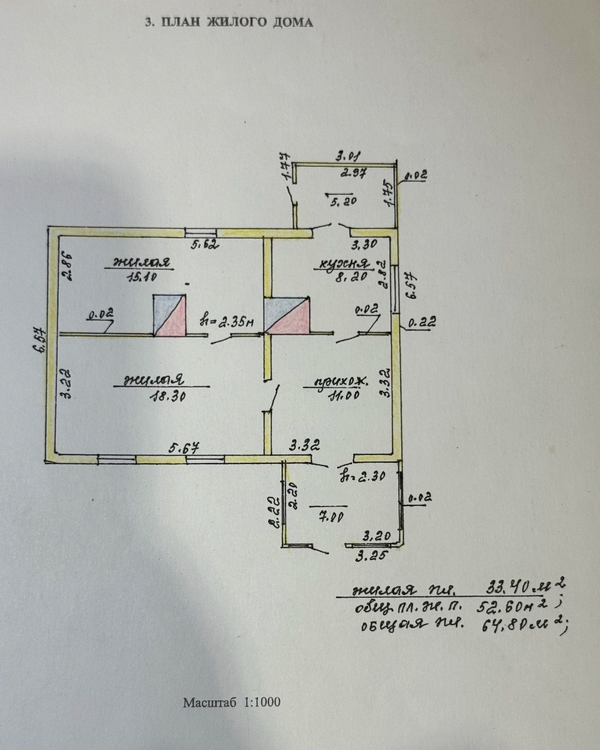 3. ПЛАН ЖИЛОГО ДОМА
3.01
1.77
2.97
0.02
1.75
5.20
5.62
3.30
жилая
15.10
2.86
кухня
8.20
2.82
6.57
0.02
h=2.35м
0.02
0.22
6.57
жилая
18.30
3.22
прихож.
11.00
3.32
5.67
3.32
h=2.30
2.22
2.20
7.00
0.02
3.20
3.25
жилая пл. 33.40м²
общ пл. ж. п. 52.60м²;
общая пл. 64.80м²;
Масштаб 1:1000